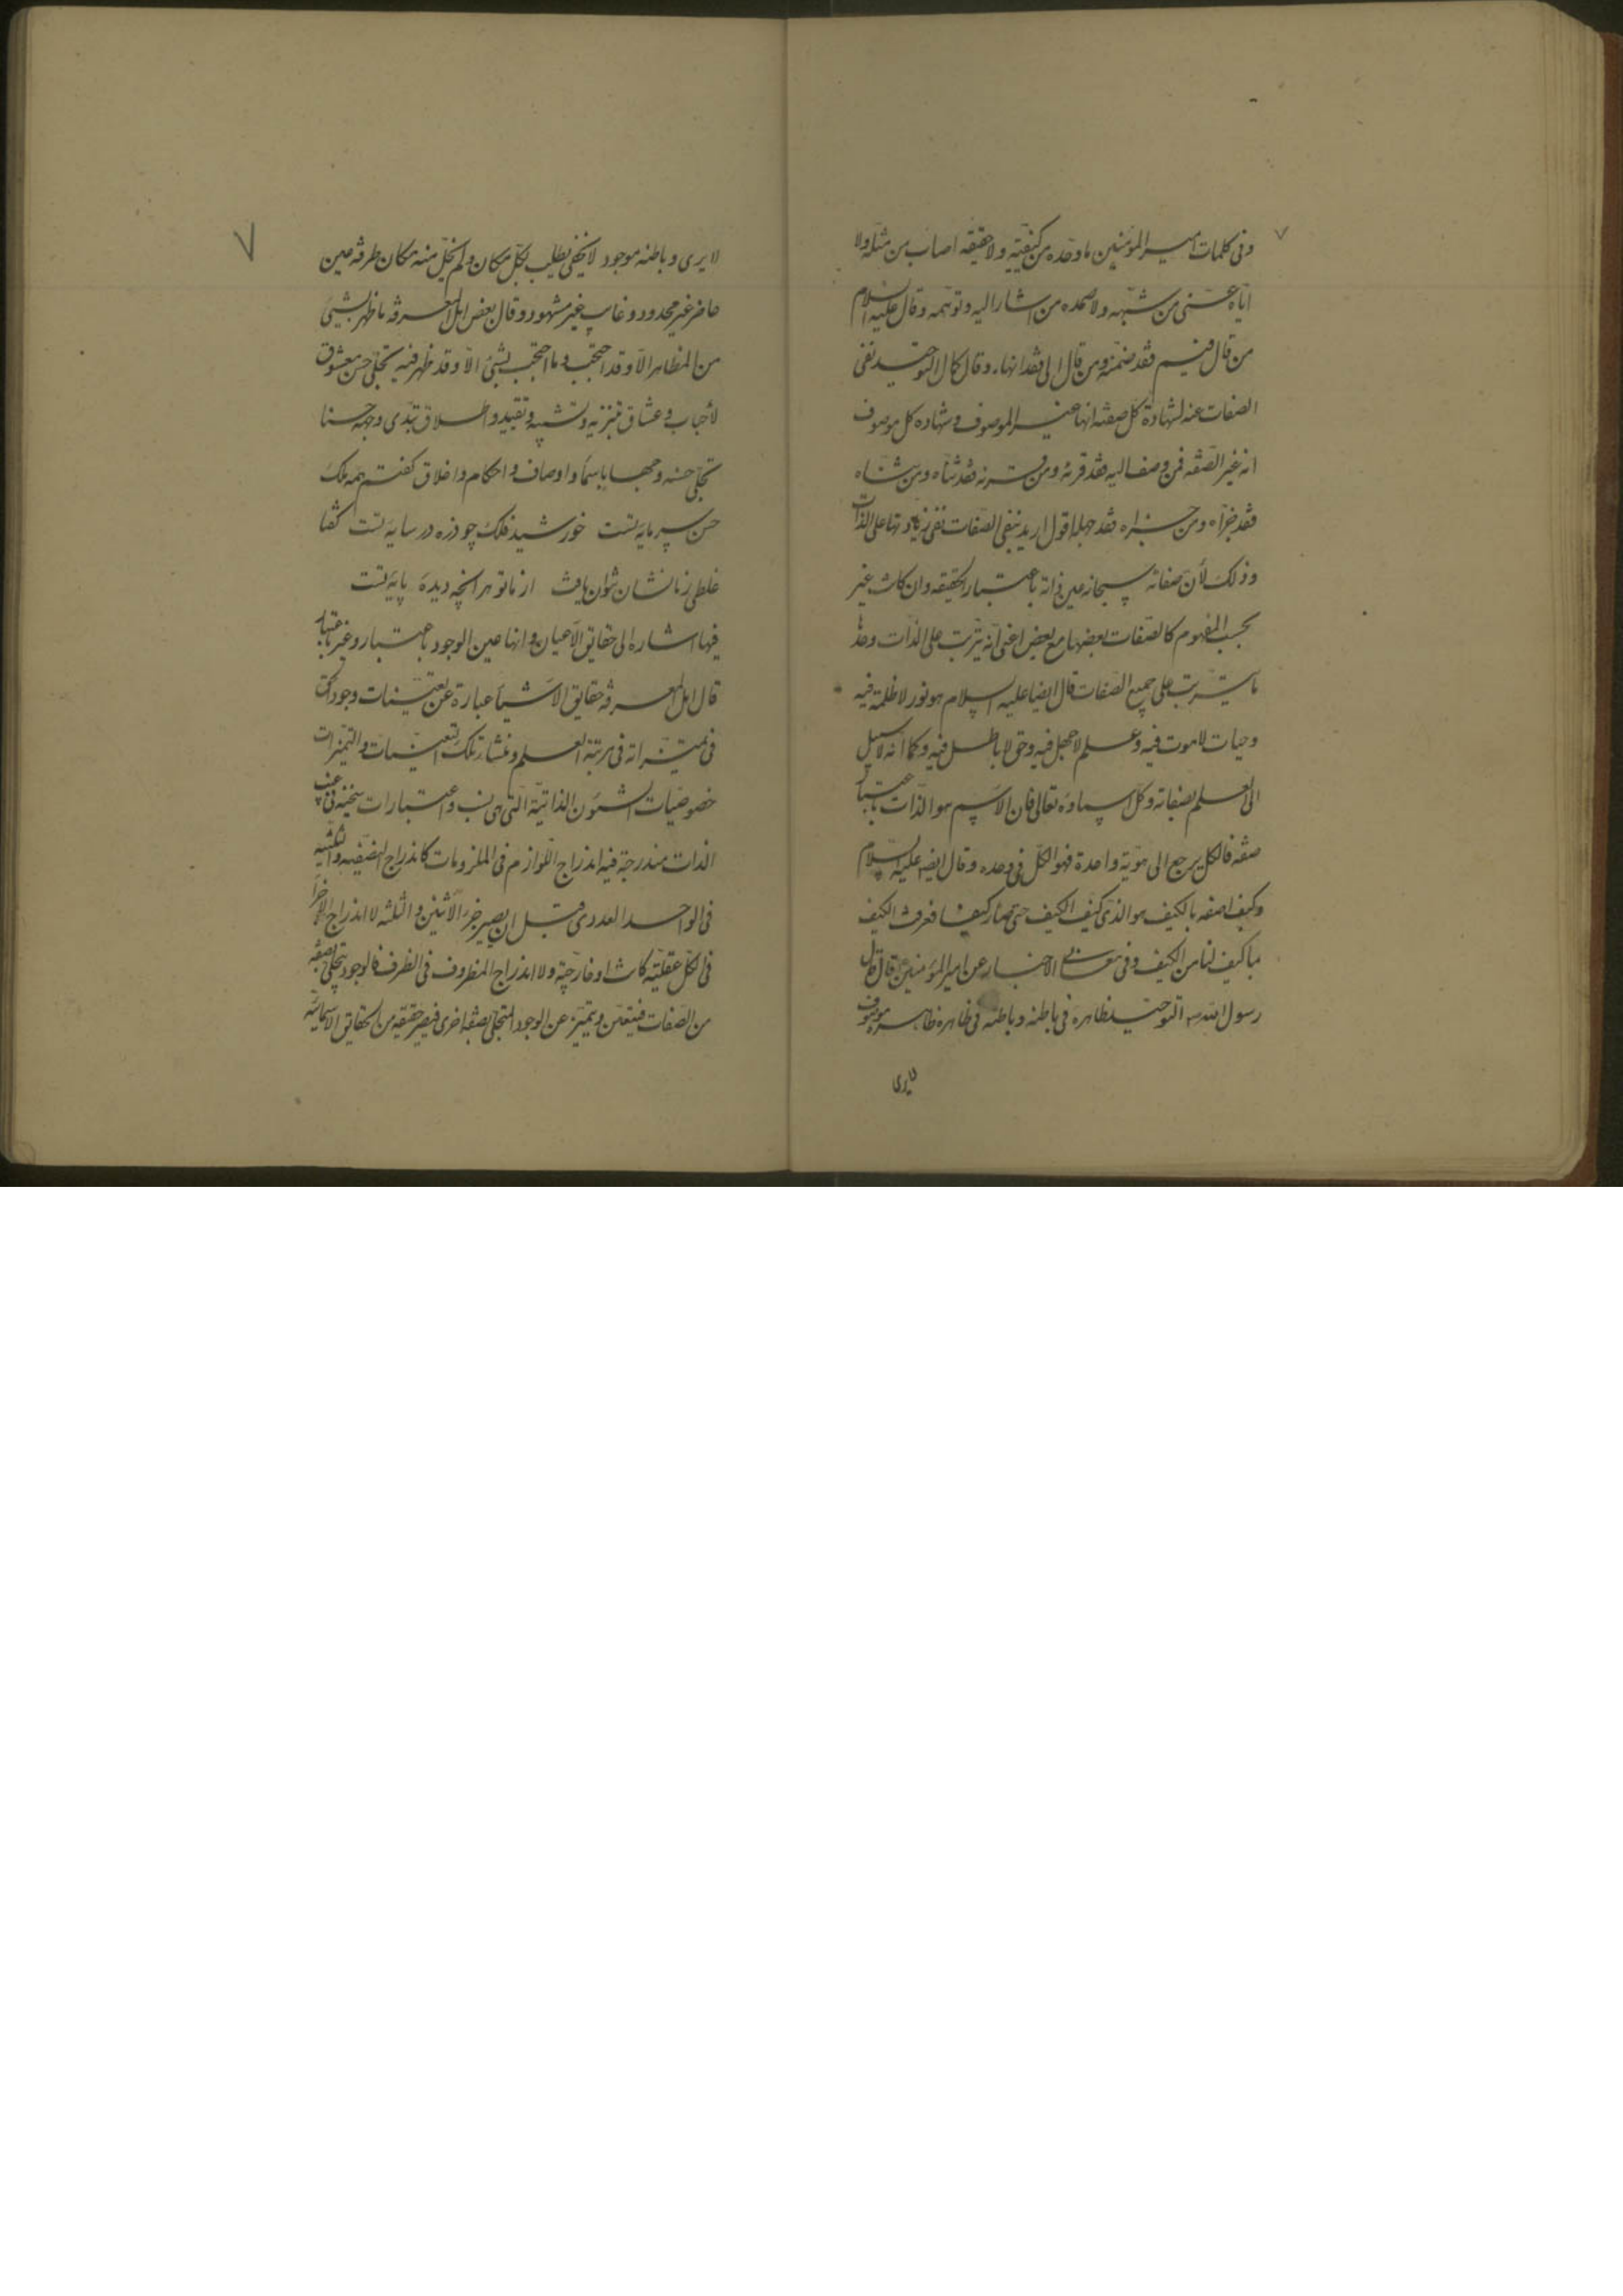 ٧
وفی کلمات امیر المؤمنین ما وحده من کیفیته ولا حقیقه اصاب من مثله ولا
ایاه عنی من شبهه ولا صمده من اشار الیه و توهمه و قال علیه السلام
من قال فیم فقد ضمنه ومن قال الی فقد انهاه و قال کمال التوحید نفی
الصفات عنه لشهادة کل صفته انها غیر الموصوف و شهاده کل موصوف
انه غیر الصفه فمن وصف الیه فقد قرنه ومن قرنه فقد ثناه ومن ثناه
فقد جزأه ومن جزاه فقد جهله اقول ارید بنفی الصفات نفی زیادتها علی الذات
وذلک لأن صفاته سبحانه عین ذاته باعتبار الحقیقه وان کانت غیر
بحسب المفهوم کالصفات بعضها مع بعض اعنی انه یترتب علی الذات وحدها
ما یترتب علی جمیع الصفات قال ایضا علیه السلام هو نور لا ظلمة فیه
وحیات لا موت فیه وعلم لا جهل فیه وحق لا باطل فیه وکما انه لا سبیل
الی العلم بصفاته وکل اسماؤه تعالی فان الاسم هو الذات باعتبار
صفه فالکل یرجع الی هویة واحدة فهو الکل فی وحده وقال ایضا علیه السلام
وکیف اصفه بالکیف هو الذی کیف الکیف حتی صار کیفا فعرفت الکیف
بما کیف لنا من الکیف وفی معانی الاخبار عن امیر المؤمنین ع قال قال
رسول الله ص التوحید ظاهره فی باطنه وباطنه فی ظاهره ظاهره موصوف
لایری
٧
لا یری وباطنه موجود لا یخفی یطلب بکل مکان ولم یخل منه مکان طرفة عین
حاضر غیر محدود وغایب غیر مشهود وقال بعض اهل المعرفه ما ظهر بشیئ
من المظاهر الا وقد احتجب وما احتجب بشیئ الا وقد ظهر فیه تجلی حسن معشوق
لأحباب وعشاق بتنزیه وتشبیه وتقیید واطلاق تبدی وجهه حسنا
تجلی حسنه وجها باسما واوصاف واحکام واخلاق گفتم همه ملک
حسن سرمایه تست خورشید فلک چو ذره در سایه تست گفتا
غلطی ز ما نشان نتوان یافت از ما تو هر آنچه دیدهٔ پایه تست
فیها اشاره الی حقایق الاعیان وانها عین الوجود باعتبار وغیره باعتبار
قال اهل المعرفه حقایق الاشیأ عبارة عن تعینات وجود الحق
فی تمیزاته فی مرتبة العلم ومنشأ تلک التعینات والتمیزات
خصوصیات الشئون الذاتیة التی هی نسب واعتبارات مستجنه فی غیب
الذات مندرجة فیه اندراج اللوازم فی الملزومات کاندراج النصفیه والثلثیه
فی الواحد العددی قبل ان یصیر جزء الاثنین والثلثه لا اندراج الاجزاء
فی الکل عقلیه کانت او خارجیة ولا اندراج المظروف فی الظرف فالوجود یتجلی بصفه
من الصفات فیتعین ویتمیز عن الوجود المتجلی بصفه اخری فیصیر حقیقه من الحقایق الاسمائیه